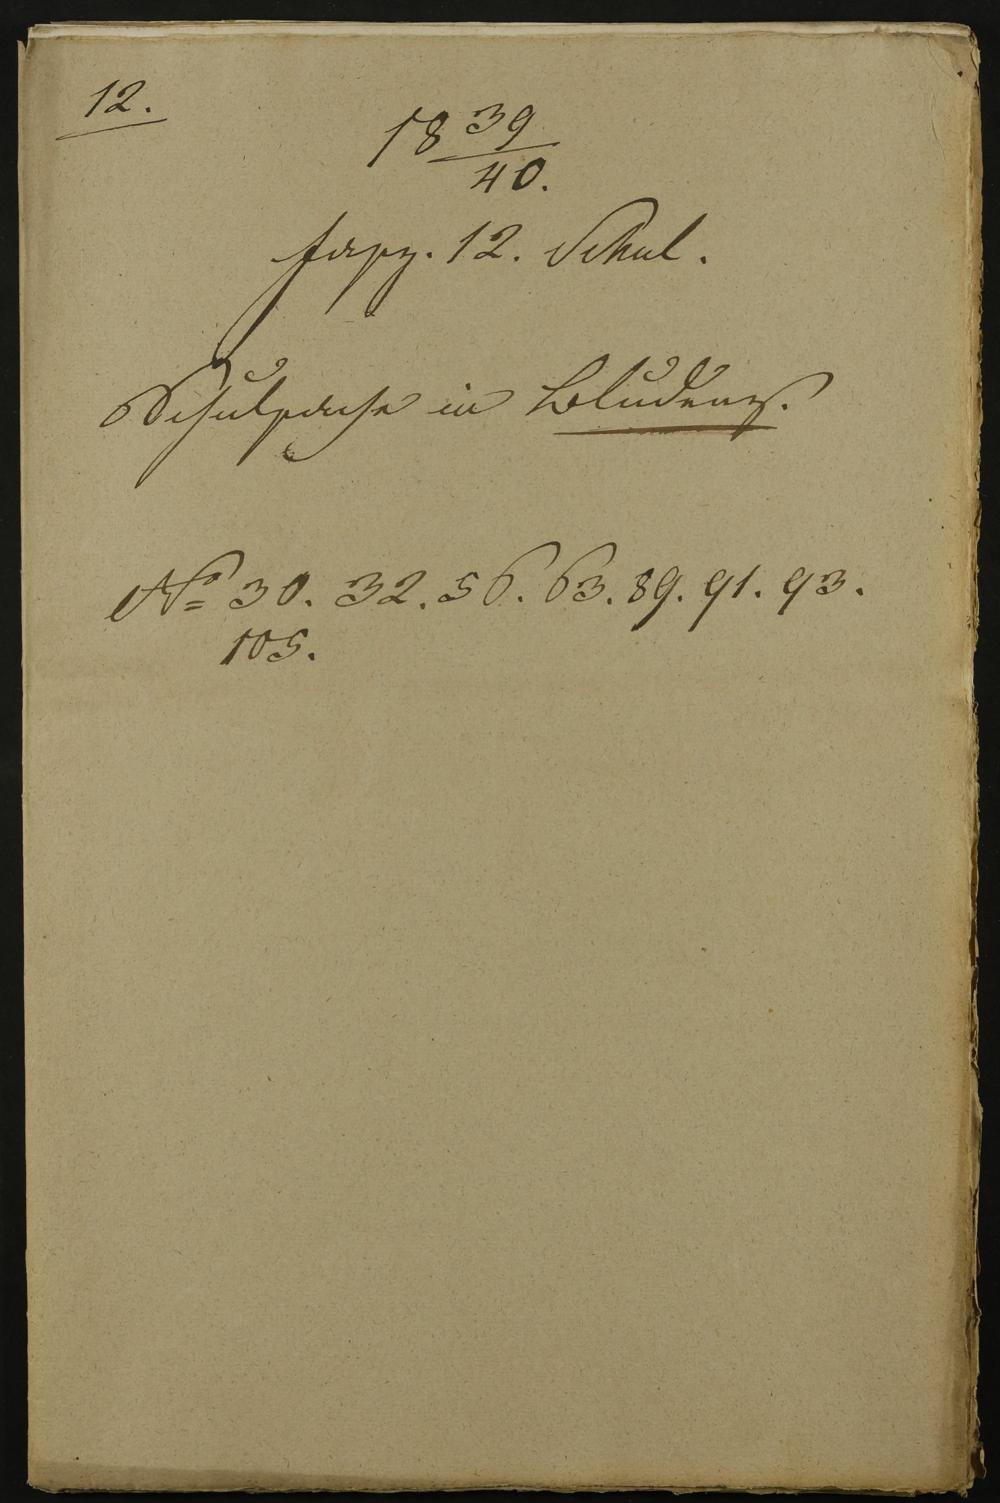 12.
18 39/40.
fasz. 12. Schul.
Schulsache in Bludenz.
No 30. 32. 56. 63. 89. 91. 93.
105.